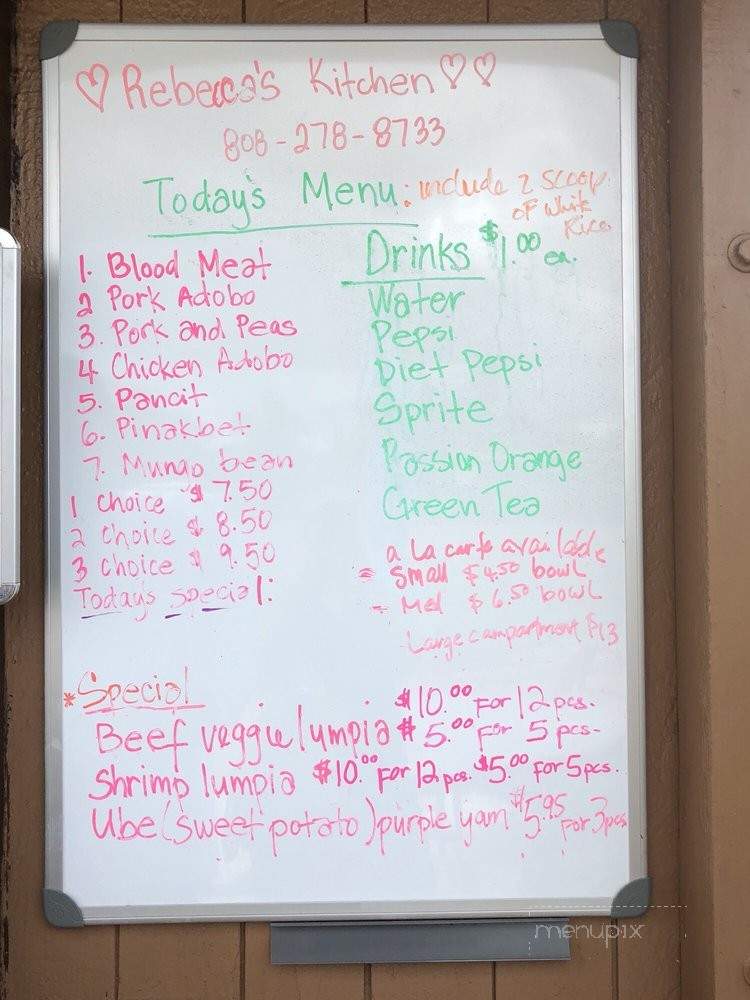 ♡ Rebecca's Kitchen ♡♡
808-278-8733
Today's Menu: include 2 scoop
of white
Rice
1. Blood Meat
2 Pork Adobo
3. Pork and Peas
4 Chicken Adobo
5. Pancit
6. Pinakbet
7. Mungo bean
1 choice $7.50
2 choice $8.50
3 choice $9.50
Today's special:
Drinks $1.00 ea.
Water
Pepsi
Diet Pepsi
Sprite
Passion Orange
Green Tea
a La carte available
- Small $4.50 bowl
- Med $6.50 bowl
Large compartment $13
*Special
$10.00 for 12 pcs.
Beef veggie lumpia $5.00 for 5 pcs-
Shrimp lumpia $10.00 for 12 pcs. $5.00 for 5 pcs.
Ube (sweet potato) purple yam $5.95 for 3 pcs
menupix